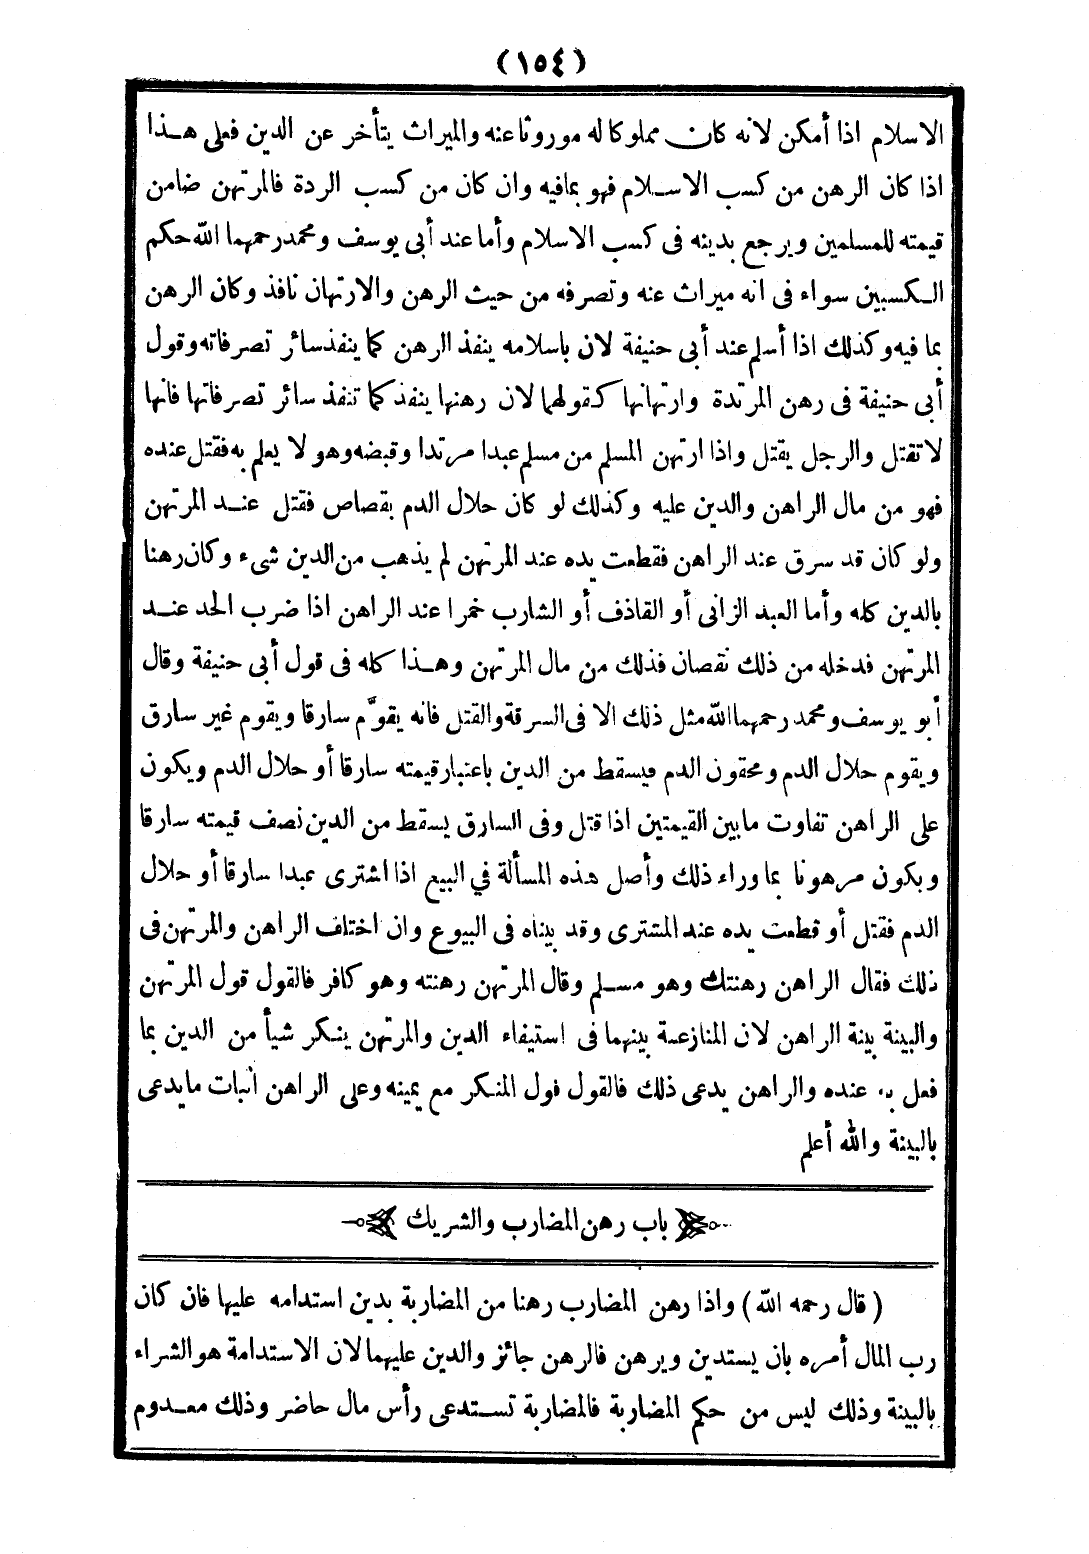 (١٥٤)
الاسلام اذا أمكن لانه كان مملوكا له موروثا عنه والميراث يتأخر عن الدين فعلى هذا
اذا كان الرهن من كسب الاسلام فهو بمافيه وان كان من كسب الردة فالمرتهن ضامن
قيمته للمسلمين ويرجع بدينه فى كسب الاسلام وأما عند أبى يوسف ومحمد رحمهما الله حكم
الكسبين سواء فى انه ميراث عنه وتصرفه من حيث الرهن والارتهان نافذ وكان الرهن
بما فيه وكذلك اذا أسلم عند أبى حنيفة لان باسلامه ينفذ الرهن كما ينفذ سائر تصرفاته وقول
أبى حنيفة فى رهن المرتدة وارتهانها كقولهما لان رهنها ينفذ كما تنفذ سائر تصرفاتها فانها
لا تقتل والرجل يقتل واذا ارتهن المسلم من مسلم عبدا مرتدا وقبضه وهو لا يعلم به فقتل عنده
فهو من مال الراهن والدين عليه وكذلك لو كان حلال الدم بقصاص فقتل عند المرتهن
ولو كان قد سرق عند الراهن فقطعت يده عند المرتهن لم يذهب من الدين شىء وكان رهنا
بالدين كله وأما العبد الزانى أو القاذف أو الشارب خمرا عند الراهن اذا ضرب الحد عند
المرتهن فدخله من ذلك نقصان فذلك من مال المرتهن وهذا كله فى قول أبى حنيفة وقال
أبو يوسف ومحمد رحمهما الله مثل ذلك الا فى السرقة والقتل فانه يقوّم سارقا ويقوم غير سارق
ويقوم حلال الدم ومحقون الدم فيسقط من الدين باعتبار قيمته سارقا أو حلال الدم ويكون
على الراهن تفاوت ما بين القيمتين اذا قتل وفى السارق يسقط من الدين نصف قيمته سارقا
ويكون مرهونا بما وراء ذلك وأصل هذه المسألة في البيع اذا اشترى عبدا سارقا أو حلال
الدم فقتل أو قطعت يده عند المشترى وقد بيناه فى البيوع وان اختلف الراهن والمرتهن فى
ذلك فقال الراهن رهنتك وهو مسلم وقال المرتهن رهنته وهو كافر فالقول قول المرتهن
والبينة بينة الراهن لان المنازعة بينهما فى استيفاء الدين والمرتهن ينكر شيأ من الدين بما
فعل به عنده والراهن يدعى ذلك فالقول قول المنكر مع يمينه وعلى الراهن اثبات مايدعى
بالبينة والله أعلم
باب رهن المضارب والشريك
(قال رحمه الله) واذا رهن المضارب رهنا من المضاربة بدين استدامه عليها فان كان
رب المال أمره بان يستدين ويرهن فالرهن جائز والدين عليهما لان الاستدامة هو الشراء
بالبينة وذلك ليس من حكم المضاربة فالمضاربة تستدعى رأس مال حاضر وذلك معدوم